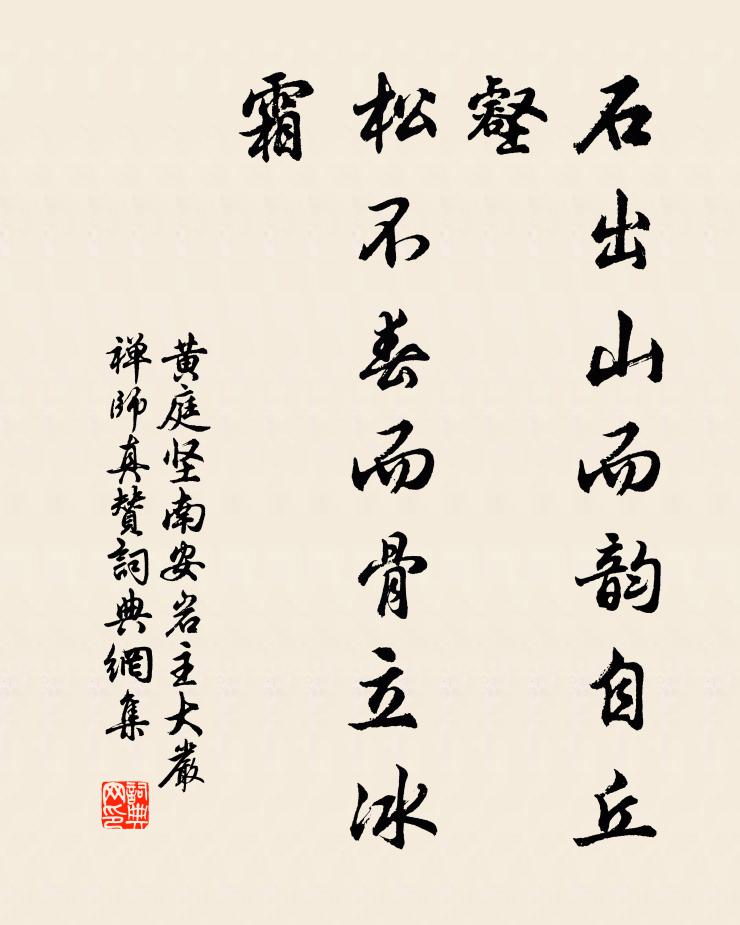 石出山而韵自丘
壑
松不春而骨立冰
霜
黄庭坚南安岩主大嚴
禅師真賛詞典網集
詞典网印